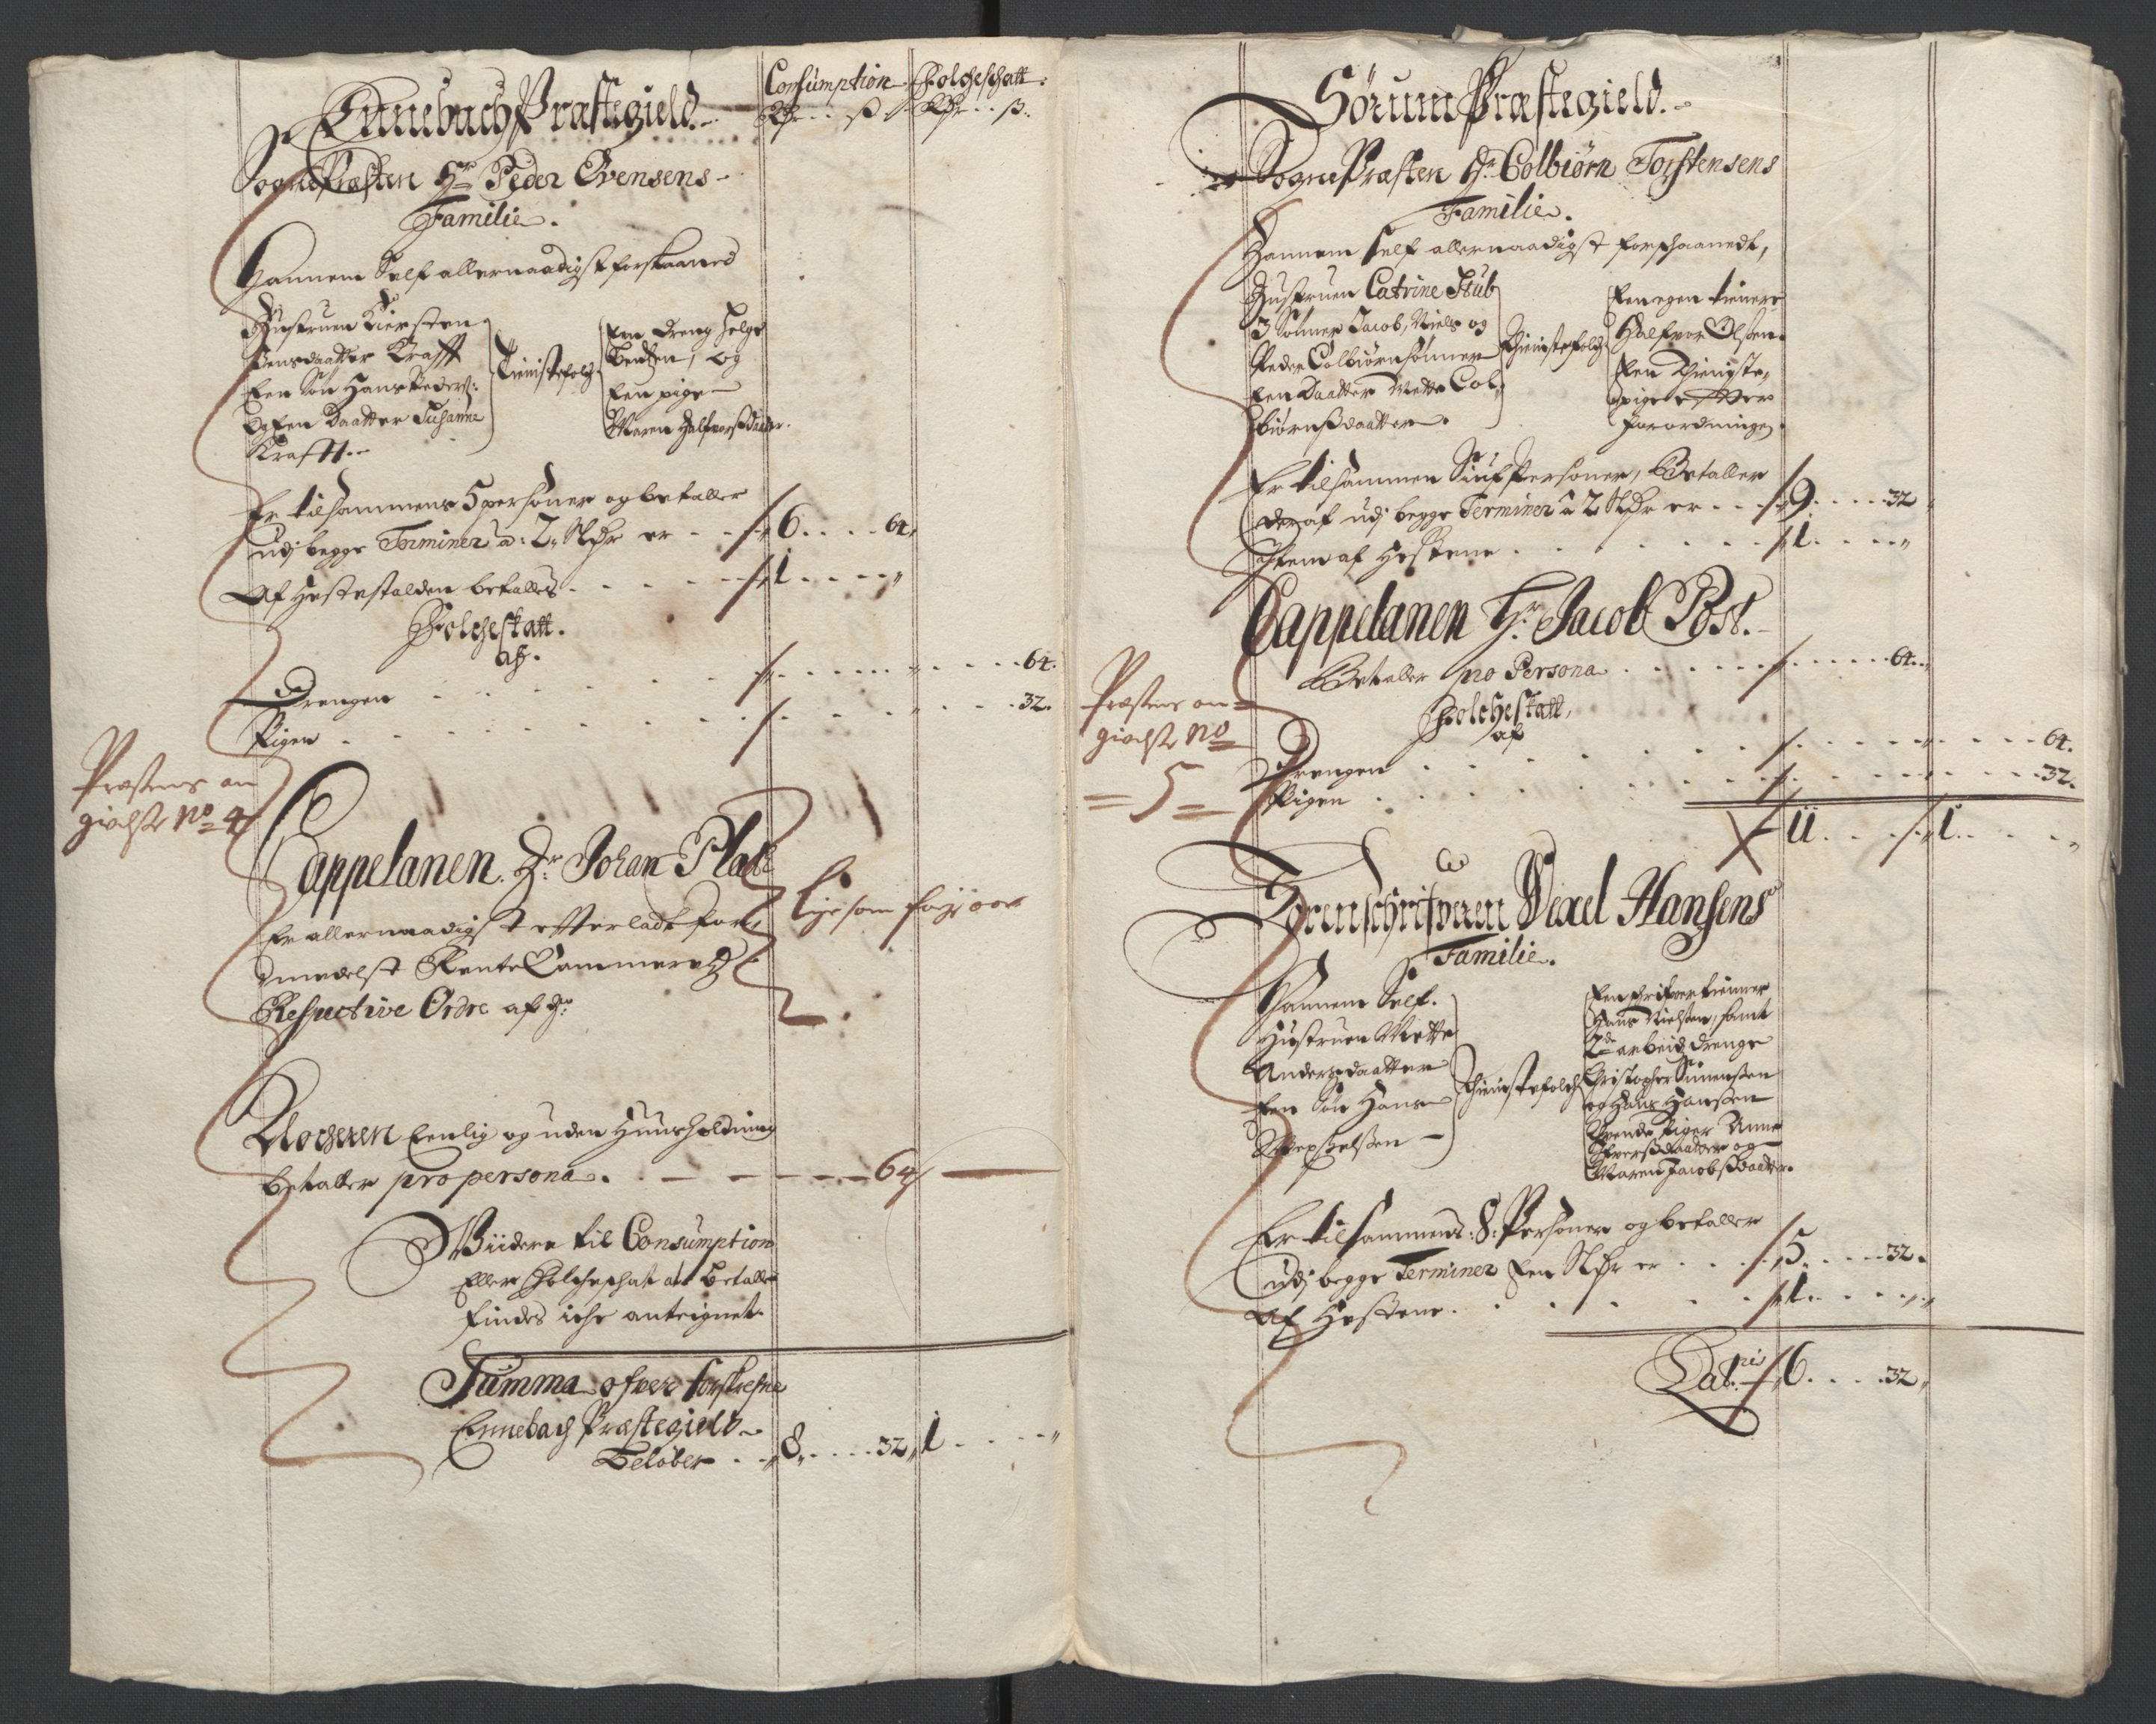 Consumption Folcheschatt:
Rdr .. ß Rdr .. ß.
Ennebach Præstegield.
SognePræsten Hr Peder Evensens
Familie.
Hannem Self allernaadigst forskaaned
Hustruen Kiersten
Jensdaatter Krafft
Een Søn Hans Peders:
Og Een Daatter Susanna
Krafft.
Tienistefolch
Een Dreng Helge
Bentsen, og
Een pige
Maren Halfvorsdaatter.
Er tilsammens 5 personer og betaller
udj begge Terminer a: 2 Rdr er 6 64
Af Hestestalden betalles 1
Folcheskatt.
af.
Drengen 64.
Pigen 32.
Præstens an
gifvelse No 4
Cappelanen. Hr. Johan Plade
Er allernaadigst efterladt for,
medelst RenteCammeretz
Respective Ordre af
Lige som forj: aar
Klocheren Eenlig og uden Huusholdning
betaller pro persona. 64
Viidere til Consumption
Eller Folcheschat at betalle
findes iche anteignet
Summa ofver forskrefne
Ennebach Præstegield
Beløber 8 32 1
Sørum Præstegield.
SognePræsten Hr. Colbiørn Torstensens
Familie.
Hannem self allernaadigst forschaanedt,
Hustruen Catrine Stub
3 Sønner Jacob, Niels og
Peder Colbiørnsønner
Een Daatter Mette Col,
biørnsdaatter.
Thienistefolch
Een egen tienere
Halfvor Olsen.
Een Thieniste,
pige efter
forordningen.
Er tilsammen Siuf Personer, Betaller
deraf udj begge Terminer a 2 Rdr er 9 32
Item af Hestene 1
Cappelanen Hr. Jacob Post.
Betaller pro Persona 64
Folcheskatt,
af
Drengen 64.
Pigen 32.
11 1
Præstens an
gifvelse No
= 5 =
Sorenschrifveren Vexel Hansens
Familie.
Hannem Self.
Hustruen Mette
Andersdaatter
Een Søn Hans
Wexelsen
Thienistefolch
Een schrifver tienner
Hans Nielsen, samt
2de arbeids drenge
Christopher Simensen
og Hans Hansen
Tvende Piger Anne
Iversdaatter og
Maren Jacobsdaatter.
Er tilsammens: 8: Personer og betaller
udj begge Terminer Een Rdr er 5 32.
af Hestene 1
Lat: 6 32